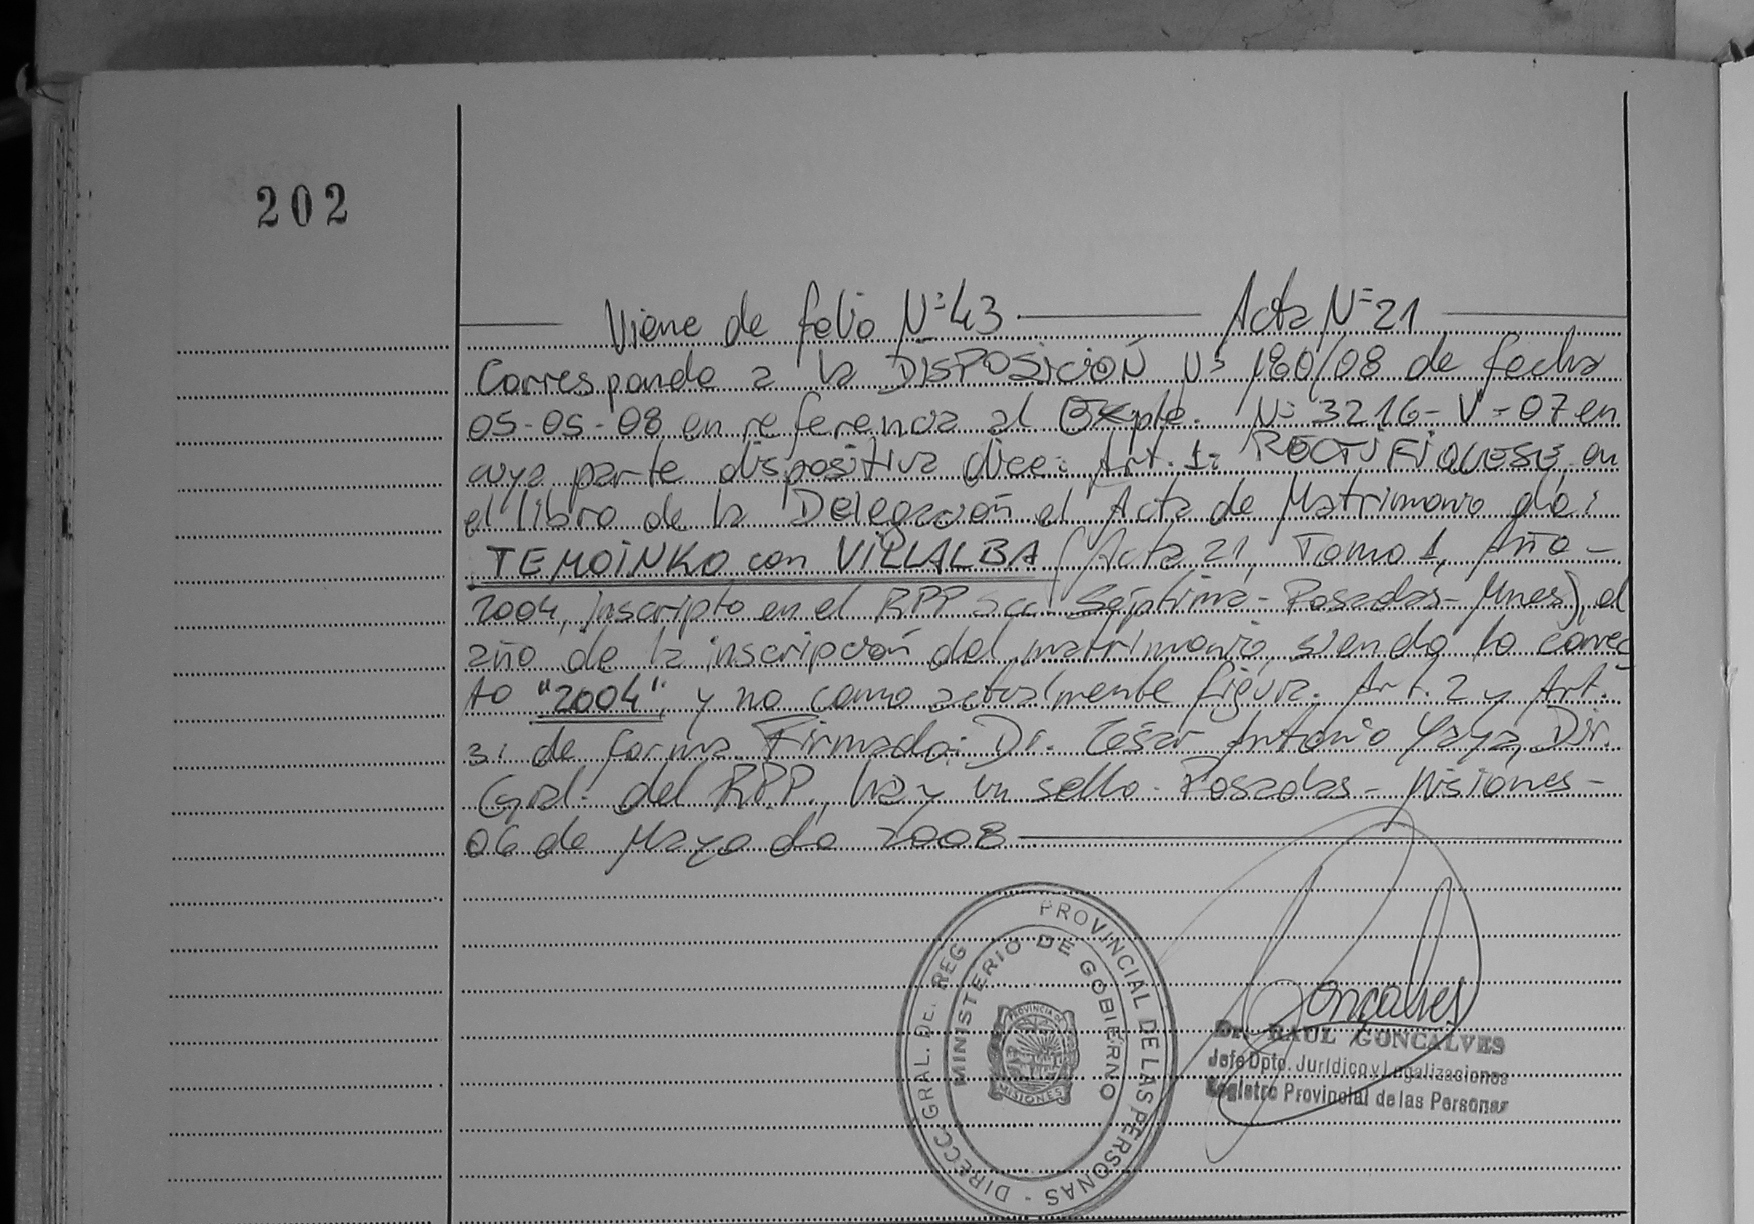 202
Viene de folio Nº 43 Acta Nº 21
Corresponde a la DISPOSICIÓN Nº 180/08 de fecha
05-05-08 en referencia al Expte. Nº 3216-V-07 en
cuya parte dispositiva dice: Art. 1: RECTIFIQUESE en
el libro de la Delegación el Acta de Matrimonio de:
TEMOINKO con VILLALBA (Acta 21, Tomo 1, Año-
2004, inscripto en el RPP Séptima - Posadas - Mnes), el
año de la inscripción del matrimonio, siendo lo correc
to "2004", y no como actualmente figura. Art. 2 y Art.
3: de forma. Firmado: Dr. César Antonio Yaya, Dir.
Gral. del RPP, hay un sello. Posadas - Misiones -
06 de Mayo de 2008
DIRECC. GRAL. DEL REG. PROVINCIAL DE LAS PERSONAS -
MINISTERIO DE GOBIERNO
PROVINCIA DE
MISIONES
Goncalves
Dr. RAUL GONCALVES
Jefe Dpto. Jurídico y Legalizaciones
Registro Provincial de las Personas